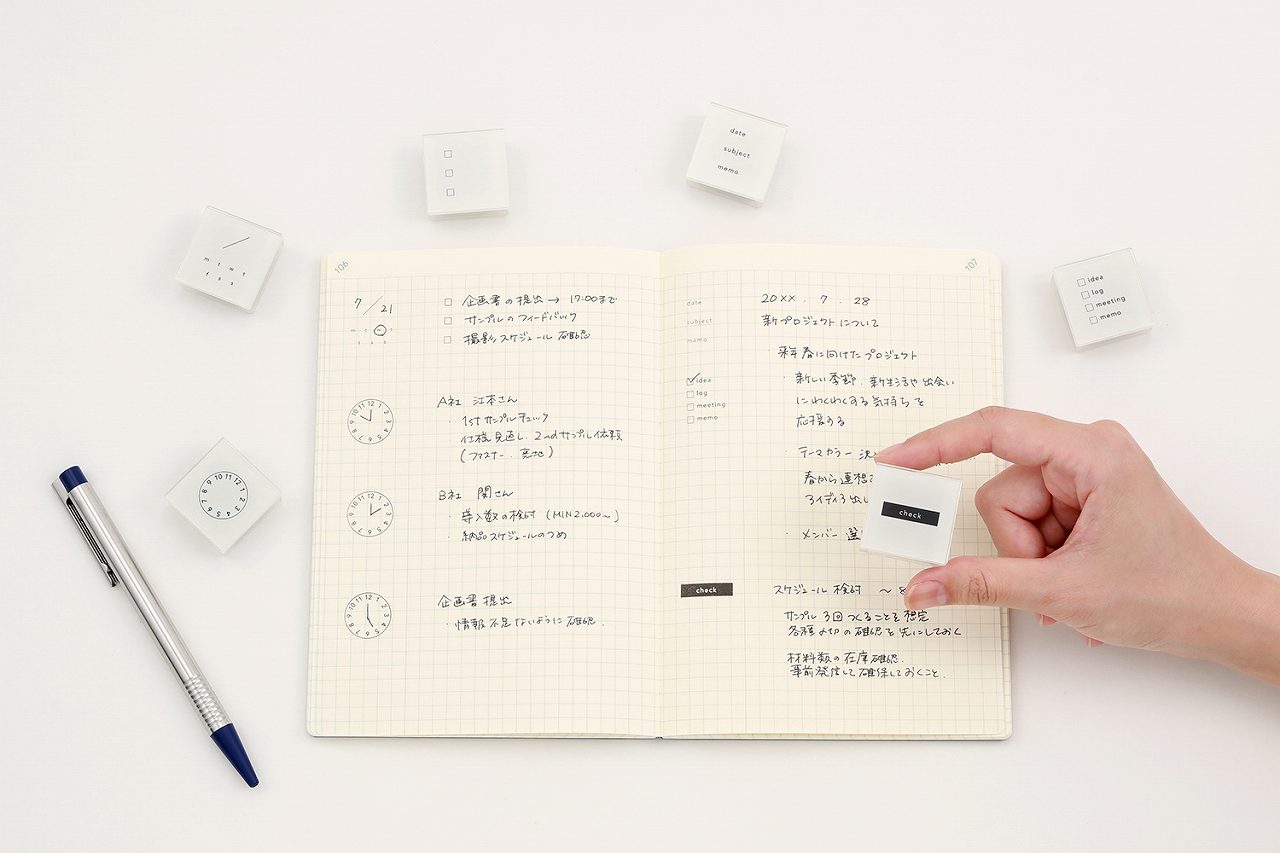 date
subject
memo
m t w t
f s s
idea
log
meeting
memo
11 12 1 2 3 4 5 6 7 8 9 10
check
106
7/21
m t w t
f s s
企画書の提出→17:00まで
サンプルのフィードバック
撮影スケジュール確認
11 12 1 2 3 4 5 6 7 8 9 10
A社 江本さん
・1stサンプルチェック
仕様見直し、2ndサンプル依頼
(ファスナー、
B社 関さん
・導入数の検討 (MIN2,000〜)
・納品スケジュールのつめ
企画書提出
・情報不足ないように確認.
107
date
20XX . 7 . 28
subject
新プロジェクトについて
memo
・来年春に向けたプロジェクト
idea
log
meeting
memo
・新しい季節、新生活や出会い
にわくわくする気持ちを
応援する
・テーマカラー
春から連想
・メンバー 選
check
スケジュール検討 〜8
サンプル3回つくることを想定
各種〆切の確認を先にしておく
材料数の在庫確認.
事前発注して確保しておくこと.